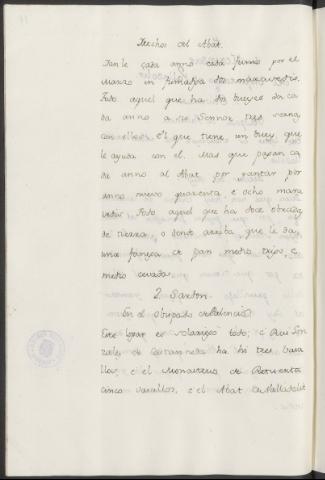 Drechos del Abat.
Danle cada anno cada fumo por el
Marzo in fumadga dos maravedis.
Todo aquel que ha dos bueyes da ca
da anno a su Sennor tres serna
con ellos: é el que tiene un buey, que
le ayuda con el. Mas que pagan ca
da anno al Abat por yantar por
anno nuevo quarenta é ocho mara
vedis: todo aquel que ha doce obradas
de tierra, o dende arriba, que le da
una fanega de pan medio trigo, é
medio cevada.
2. Santon.
En el Obispado de Palencia.
Este logar es solariego todo; é Rui Gon
zalez de Castanneda ha hi tres basa
llos, é el Monasterio de Retuerta
cinco vasallos, é el Abat de Valladolit